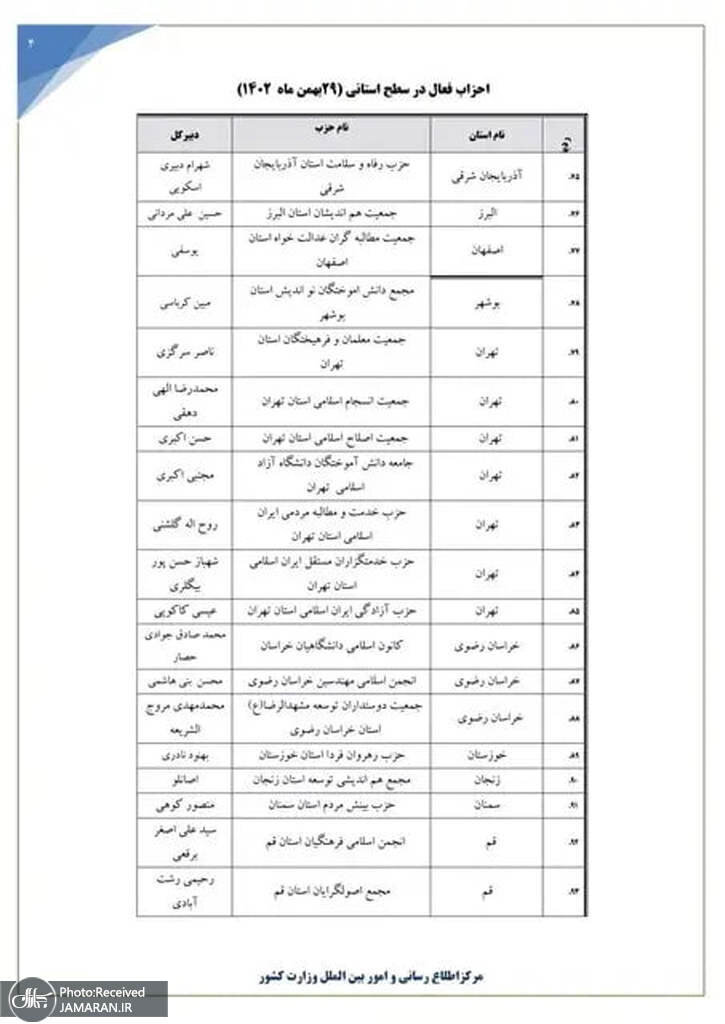 ۴
احزاب فعال در سطح استانی (۲۹بهمن ماه ۱۴۰۲)
نام استان نام حزب دبیرکل
۷۵. آذربایجان شرقی حزب رفاه و سلامت استان آذربایجان شرقی شهرام دبیری اسکویی
۷۶. البرز جمعیت هم اندیشان استان البرز حسین علی مردانی
۷۷. اصفهان جمعیت مطالبه گران عدالت خواه استان اصفهان یوسفی
۷۸. بوشهر مجمع دانش اموختگان نو اندیش استان بوشهر مبین کرباسی
۷۹. تهران جمعیت معلمان و فرهیختگان استان تهران ناصر سرگزی
۸۰. تهران جمعیت انسجام اسلامی استان تهران محمدرضا الهی دهقی
۸۱. تهران جمعیت اصلاح اسلامی استان تهران حسن اکبری
۸۲. تهران جامعه دانش آموختگان دانشگاه آزاد اسلامی تهران مجتبی اکبری
۸۳. تهران حزب خدمت و مطالبه مردمی ایران اسلامی استان تهران روح اله گلشنی
۸۴. تهران حزب خدمتگزاران مستقل ایران اسلامی استان تهران شهباز حسن پور بیگلری
۸۵. تهران حزب آزادگی ایران اسلامی استان تهران عیسی کاکویی
۸۶. خراسان رضوی کانون اسلامی دانشگاهیان خراسان محمد صادق جوادی حصار
۸۷. خراسان رضوی انجمن اسلامی مهندسین خراسان رضوی محسن بنی هاشمی
۸۸. خراسان رضوی جمعیت دوستداران توسعه مشهدالرضا(ع) استان خراسان رضوی محمدمهدی مروج الشریعه
۸۹. خوزستان حزب رهروان فردا استان خوزستان بهنود نادری
۹۰. زنجان مجمع هم اندیشی توسعه استان زنجان اصانلو
۹۱. سمنان حزب بینش مردم استان سمنان منصور کوهی
۹۲. قم انجمن اسلامی فرهنگیان استان قم سید علی اصغر برقعی
۹۳. قم مجمع اصولگرایان استان قم رحیمی رشت آبادی
مرکزاطلاع رسانی و امور بین الملل وزارت کشور
Photo:Received
JAMARAN.IR